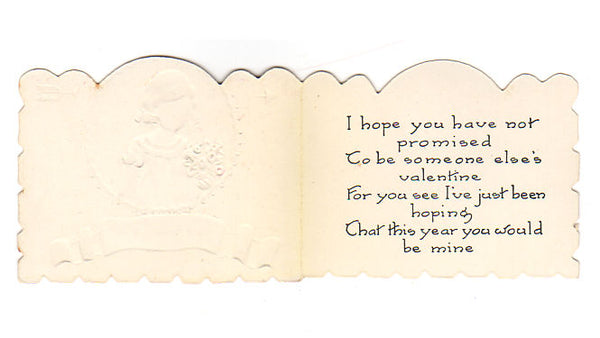 I hope you have not
promised
To be someone else's
valentine
For you see I've just been
hoping
That this year you would
be mine